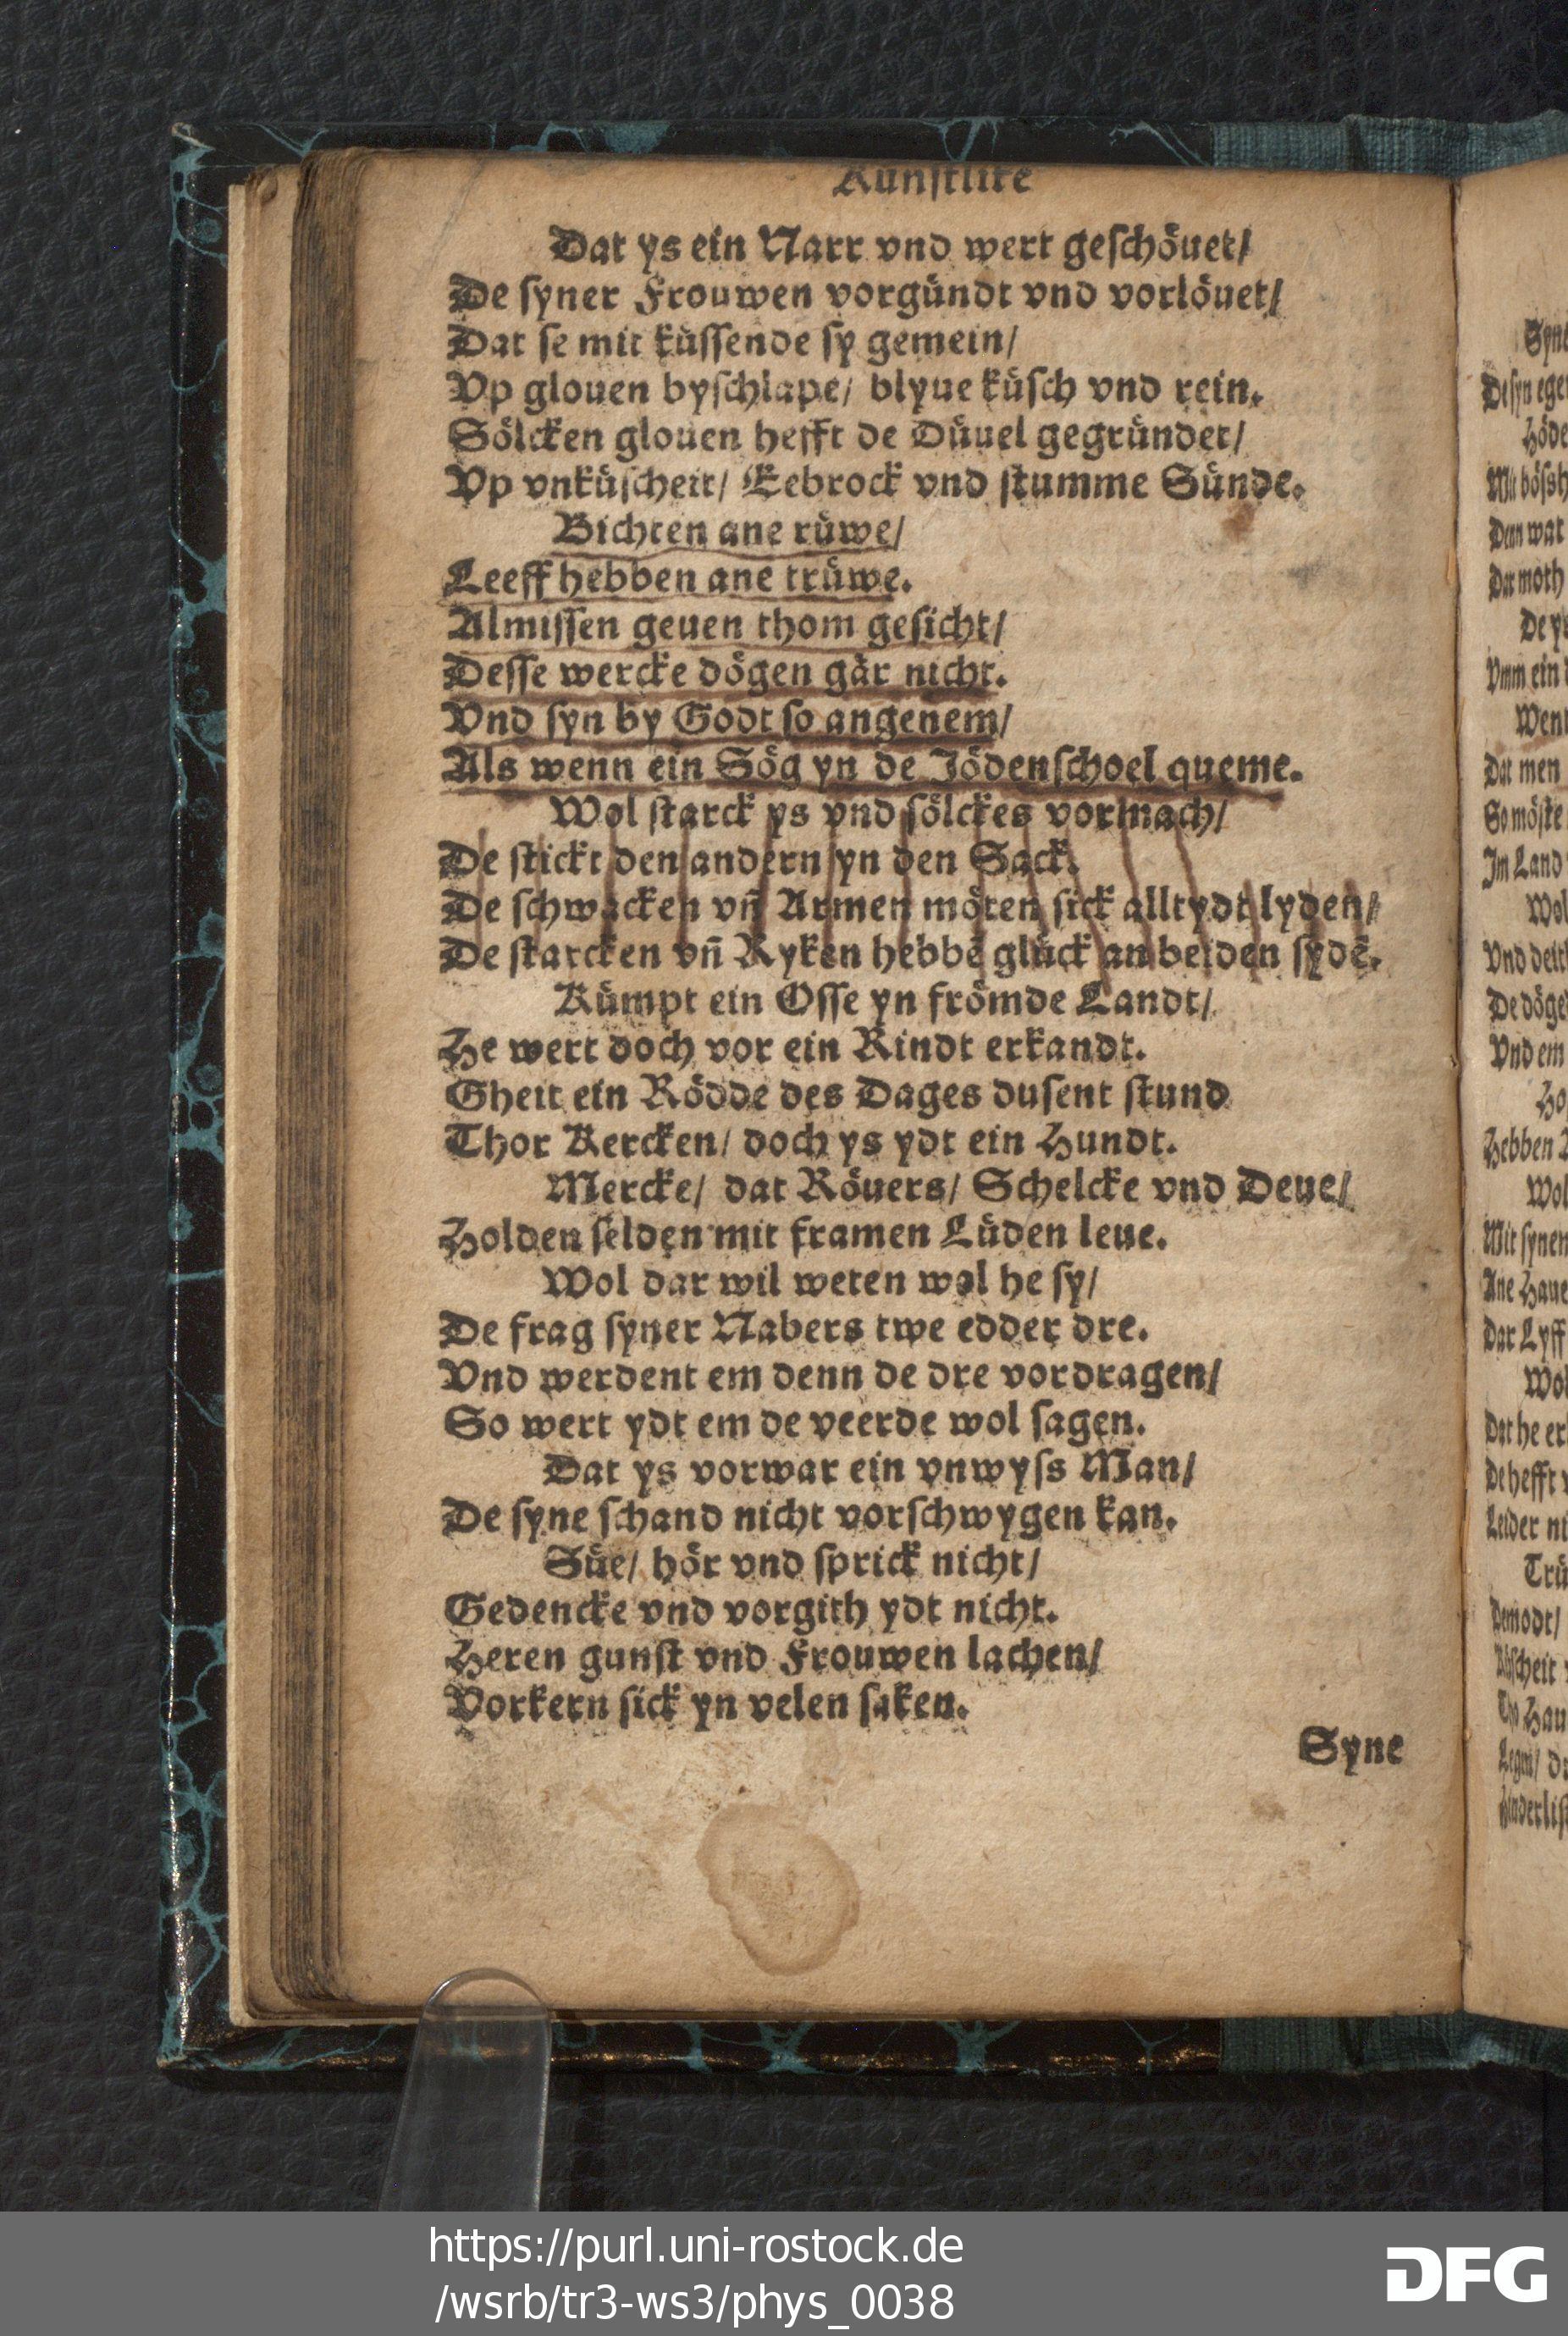 Kunstlike
Dat ys ein Narr vnd wert geschöuet/
De syner Frouwen vorgündt vnd vorlöuet/
Dat se mit küssende sy gemein/
Vp glouen byschlape/ blyue küsch vnd rein.
Sölcken glouen hefft de Düuel gegründet/
Vp vnküscheit/ Eebrock vnd stumme Sünde.
Bichten ane rüwe/
Leeff hebben ane trüwe.
Almissen geuen thom gesicht/
Desse wercke dögen gär nicht.
Vnd syn by Godt so angenem/
Als wenn ein Sög yn de Jödenschoel queme.
Wol starck ys vnd sölckes vormach/
De stickt den andern yn den Sack.
De schwacken vn̄ Armen möten sick alltydt lyden/
De starcken vn̄ Ryken hebbē glück an beiden sydē.
Kümpt ein Osse yn frömde Landt/
He wert doch vor ein Rindt erkandt.
Gheit ein Rödde des Dages dusent stund
Thor Kercken/ doch ys ydt ein Hundt.
Mercke/ dat Röuers/ Schelcke vnd Deue/
Holden selden mit framen Lüden leue.
Wol dar wil weten wol he sy/
De frag syner Nabers twe edder dre.
Vnd werdent em denn de dre vordragen/
So wert ydt em de veerde wol sagen.
Dat ys vorwar ein vnwyss Man/
De syne schand nicht vorschwygen kan.
Süe/ hör vnd sprick nicht/
Gedencke vnd vorgith ydt nicht.
Heren gunst vnd Frouwen lachen/
Vorkern sick yn velen saken.
Syne
https://purl.uni-rostock.de
/wsrb/tr3-ws3/phys_0038
DFG